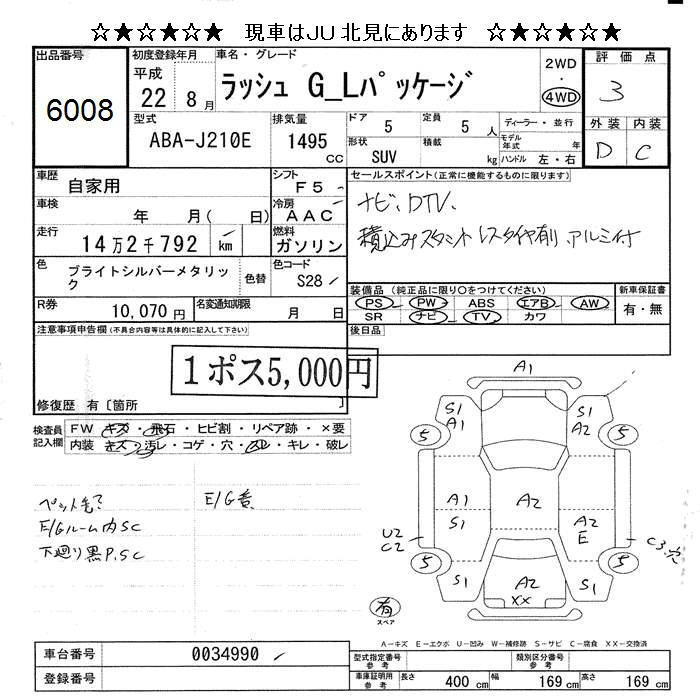 ☆★☆★☆★ 現車はJU北見にあります ☆★☆★☆★
出品番号
6008
初度登録年月
平成
22 8月
車名・グレード
ラッシュ G_Lパッケージ
2WD
・
4WD
評価点
3
外装 内装
D C
型式
ABA-J210E
排気量
1495
CC
ドア
5
定員
5 人
形状
SUV
積載
kg
ディーラー・並行
モデル年式 年
ハンドル 左・右
車歴
自家用
シフト
F5
車検
年 月( 日)
冷房
AAC
走行
14万2千792 km
燃料
ガソリン
色
ブライトシルバーメタリック
色替
色コード
S28
R券
10,070円
名変通知期限
月 日
セールスポイント(正常に機能するものに限ります)
ナビ、DTV、
積込みスタント レスタイヤ有り アルミ付
装備品 (純正品に限り○をつけてください)
PS PW ABS エアB AW
SR ナビ TV カワ
新車保証書
有・無
後日品
注意事項申告欄(不具合内容等は具体的に記入して下さい)
1ポス5,000円
修復歴 有〔箇所
検査員
記入欄
FW キズ・飛石・ヒビ割・リペア跡・×要
内装 キズ・汚レ・コゲ・穴・スレ・キレ・破レ
ペット毛?
E/Gルーム内SC
下廻り黒P,SC
E/G音
A1
S1
A1
S1
A2
5
5
A1
S1
A2
A2
E
U2
C2
C3.穴
5
5
S1
A2
XX
S1
有
スペア
A-キズ E-エクボ U-凹み W-補修跡 S-サビ C-腐食 XX-交換済
車台番号
0034990
登録番号
型式指定番号
参考
類別区分番号
参考
車庫証明用
参考
長さ 400 cm
幅 169 cm
高さ 169 cm